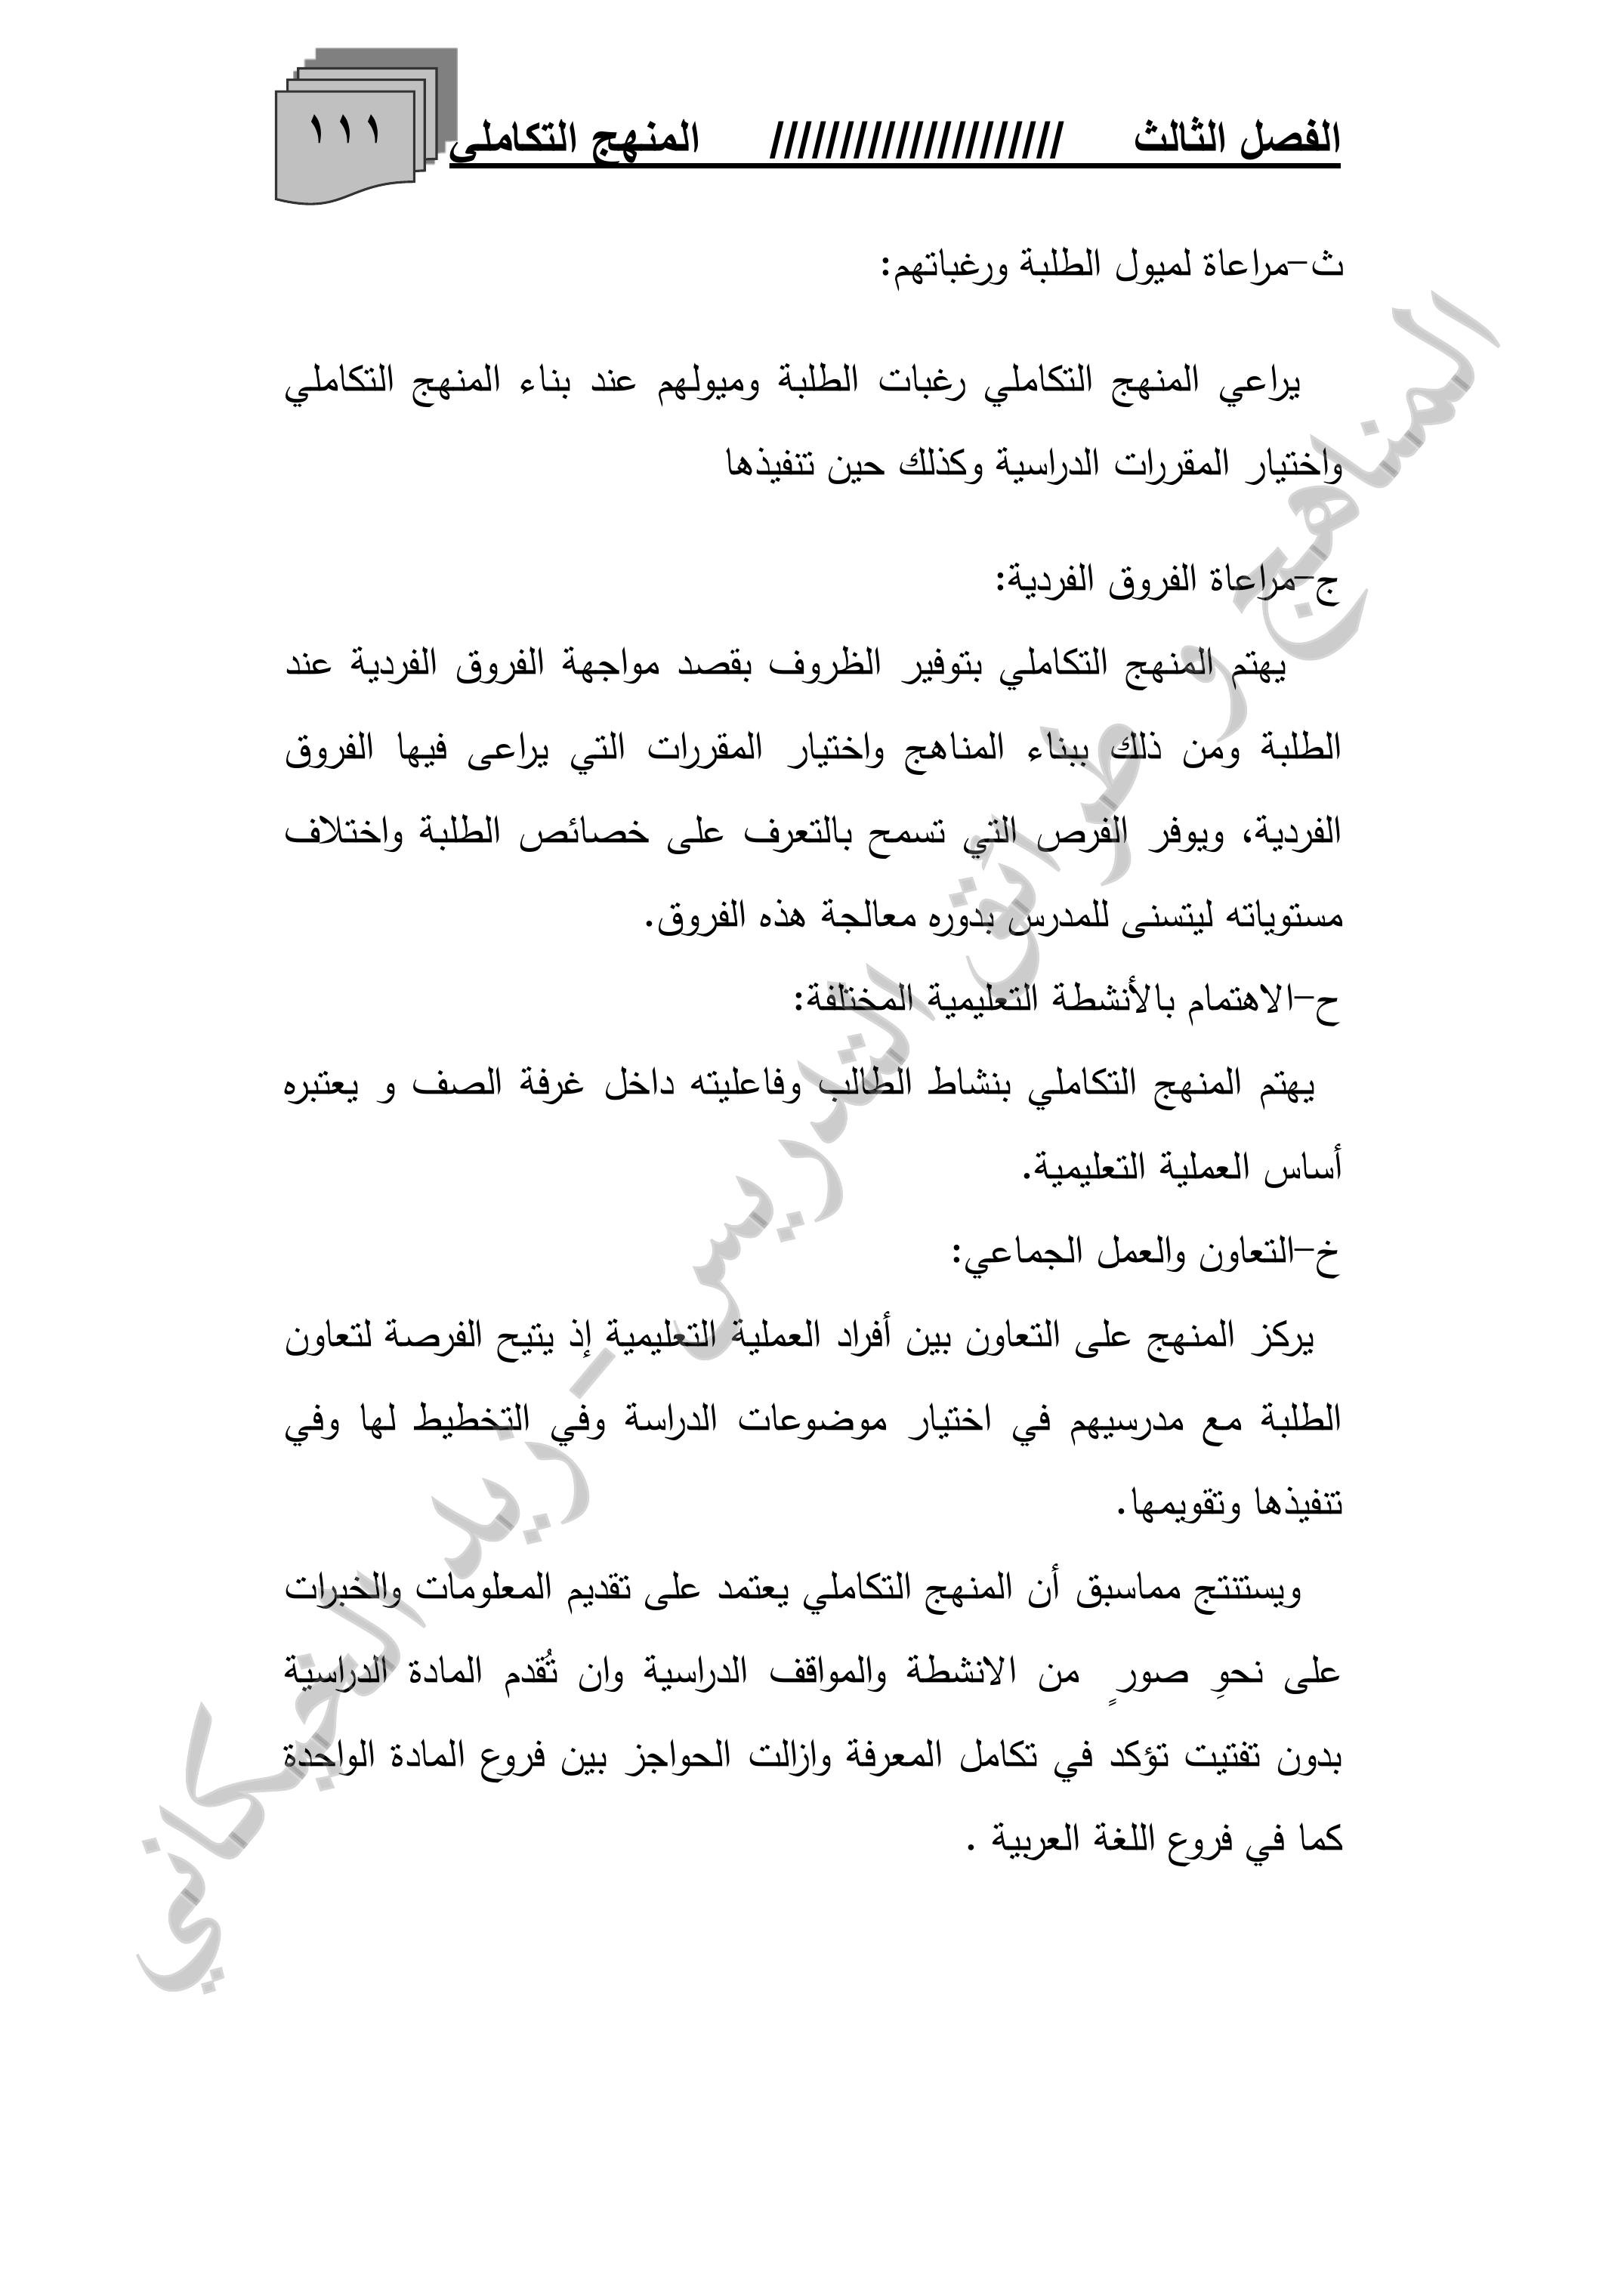 الفصل الثالث ///////////////////// المنهج التكاملي ١١١
ث-مراعاة لميول الطلبة ورغباتهم:
يراعي المنهج التكاملي رغبات الطلبة وميولهم عند بناء المنهج التكاملي
واختيار المقررات الدراسية وكذلك حين تنفيذها
ج-مراعاة الفروق الفردية:
يهتم المنهج التكاملي بتوفير الظروف بقصد مواجهة الفروق الفردية عند
الطلبة ومن ذلك ببناء المناهج واختيار المقررات التي يراعى فيها الفروق
الفردية، ويوفر الفرص التي تسمح بالتعرف على خصائص الطلبة واختلاف
مستوياته ليتسنى للمدرس بدوره معالجة هذه الفروق.
ح-الاهتمام بالأنشطة التعليمية المختلفة:
يهتم المنهج التكاملي بنشاط الطالب وفاعليته داخل غرفة الصف و يعتبره
أساس العملية التعليمية.
خ-التعاون والعمل الجماعي:
يركز المنهج على التعاون بين أفراد العملية التعليمية إذ يتيح الفرصة لتعاون
الطلبة مع مدرسيهم في اختيار موضوعات الدراسة وفي التخطيط لها وفي
تنفيذها وتقويمها.
ويستنتج مماسبق أن المنهج التكاملي يعتمد على تقديم المعلومات والخبرات
على نحوِ صورٍ من الانشطة والمواقف الدراسية وان تُقدم المادة الدراسية
بدون تفتيت تؤكد في تكامل المعرفة وازالت الحواجز بين فروع المادة الواحدة
كما في فروع اللغة العربية .
المناهج و طرائق التدريس - زيد الخيكاني